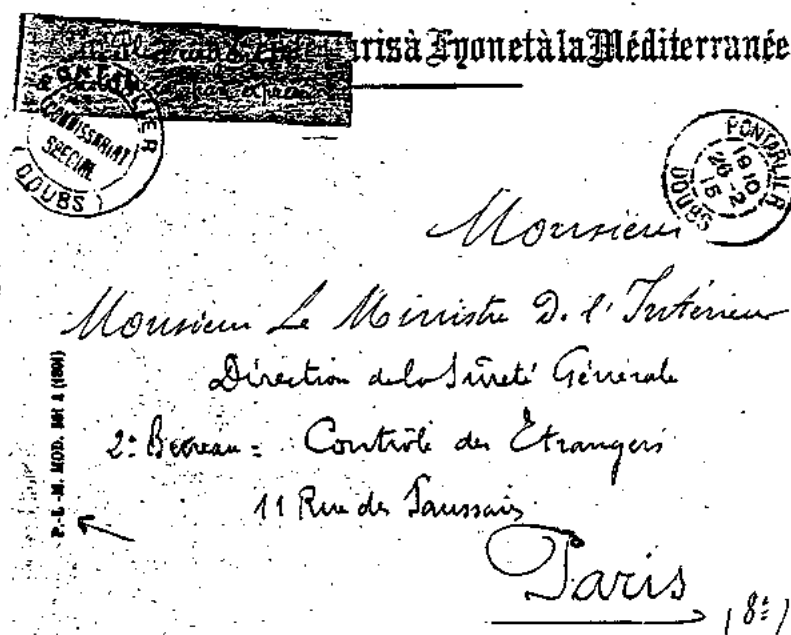 aris à Lyon et à la Méditerranée
PONTARLIER
COMMISSARIAT
SPECIAL
DOUBS
PONTARLIER
1910
26-2
15
DOUBS
Monsieur
Monsieur Le Ministre D. l'Intérieur
Direction de la Sûreté Générale
2e Bureau = Contrôle des Étrangers
11 Rue des Saussais
Paris
(8e)
P.-L.-M. MOD.